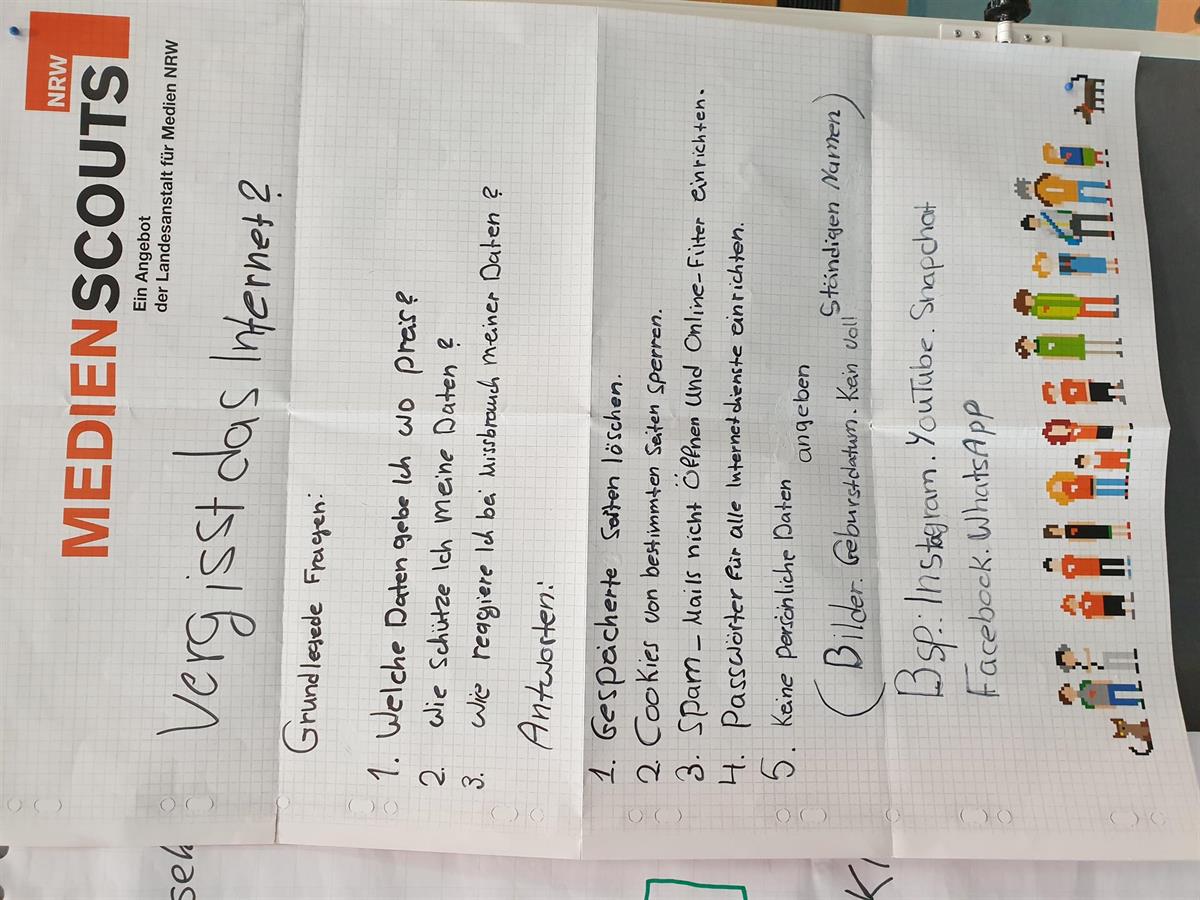 MEDIENSCOUTS NRW
Ein Angebot
der Landesanstalt für Medien NRW
Vergisst das Internet?
Grundlegede Fragen:
1. Welche Daten gebe Ich wo preis?
2. Wie schütze Ich meine Daten?
3. Wie reagiere Ich bei Missbrauch meiner Daten?
Antworten:
1. Gespeicherte Seiten löschen.
2. Cookies von bestimmten Seiten sperren.
3. Spam_Mails nicht Öffnen und Online-Filter einrichten.
4. Passwörter für alle Internetdienste einrichten.
5. Keine persönliche Daten angeben
(Bilder. Geburstdatum. Kein voll ständigen Namen)
Bsp.: Instagram. YouTube. Snapchat
Facebook. WhatsApp